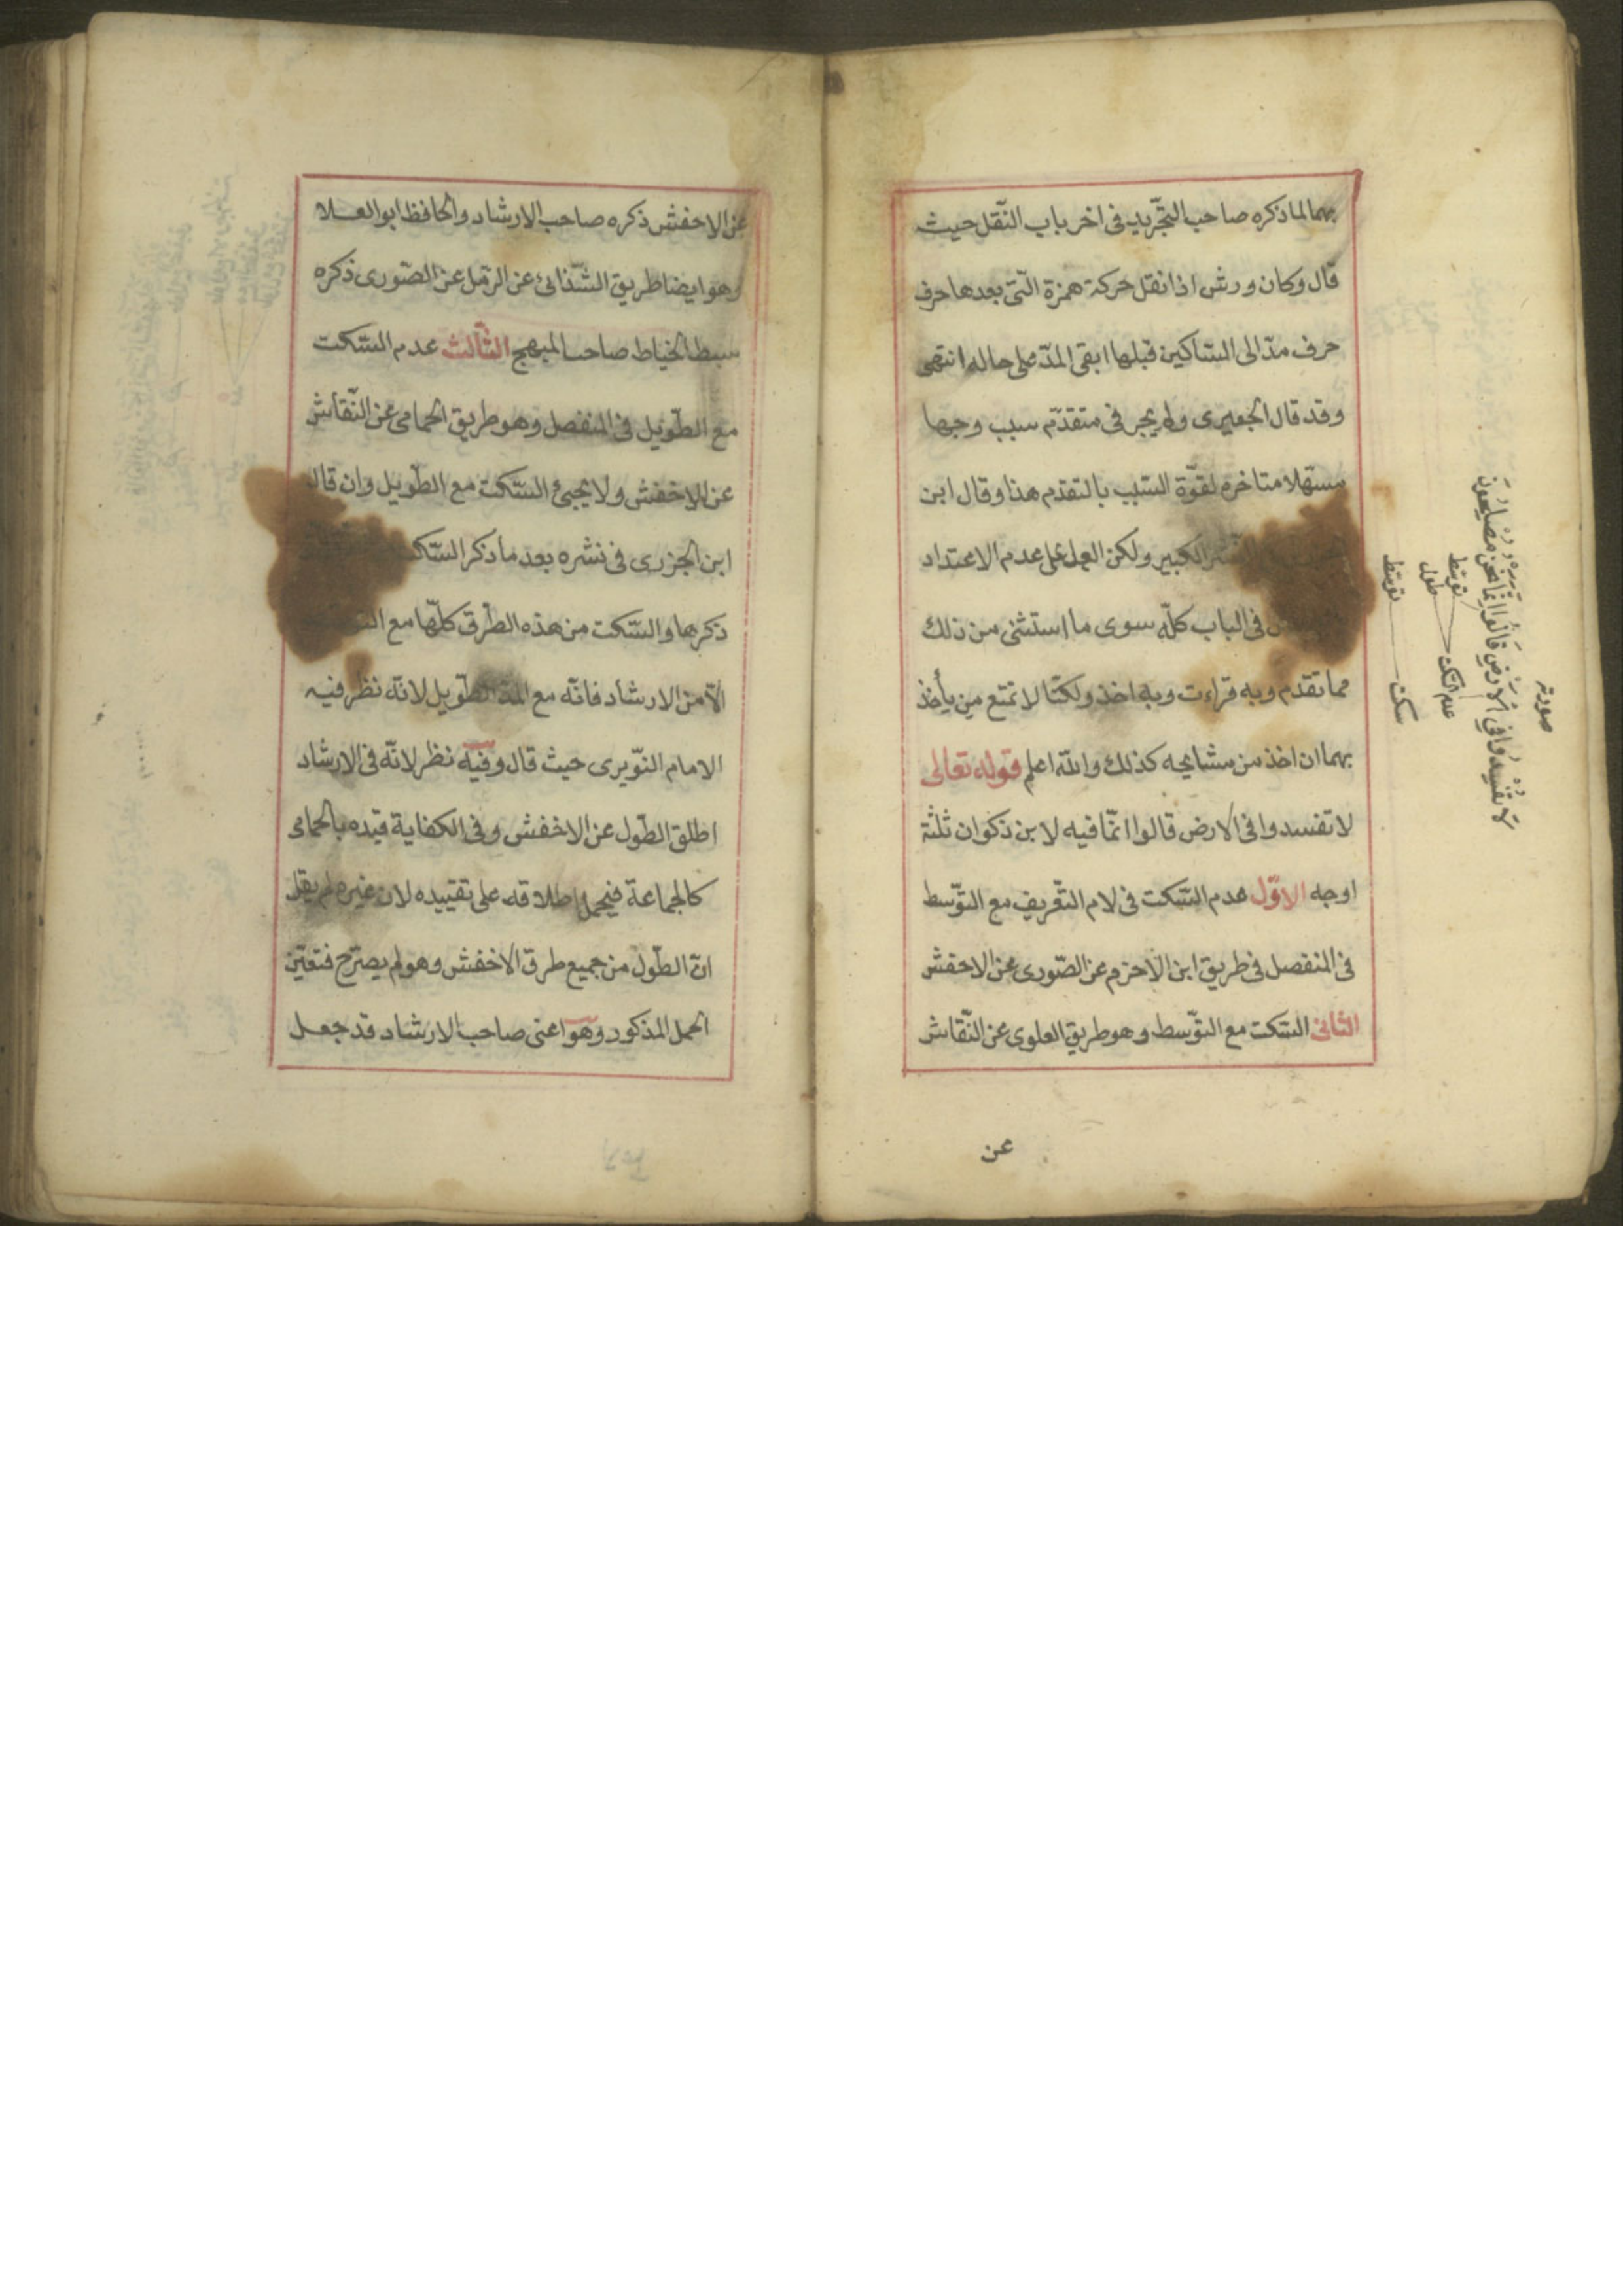 بهما لما ذكره صاحب التجّريد فى اخر باب النّقل حيث
قال وكان ورش اذا نقل حركة همزة الّتى بعدها حرف
حرف مدّ الى السّاكين قبلها ابقى المدّ على حاله انتهى
وقد قال الجعبرى ولم يجر فى متقدّم سبب وجها
مسهّلا متاخره لقوّة السّبب بالتقدم هذا وقال ابن
النّشر الكبير ولكن العمل على عدم الاعتداد
فى الباب كلّه سوى ما استثنى من ذلك
مما تقدم وبه قراءت وبه اخذ ولكنّا لا تمتع من يأخذ
بهما ان اخذ من مشايخه كذلك والله اعلم قوله تعالى
لا تفسدوا فى الارض قالوا انّما فيه لابن ذكوان ثلثة
اوجه الاوّل عدم السّكت فى لام التّعريف مع التّوسط
فى المنفصل فى طريق ابن الاحزم عن الصّورى عن الاخفش
الثّانى السّكت مع التّوسط وهو طريق العلوى عن النّقاش
عن
صورته
لَا تُفْسِدُوا فِي الْأَرْضِ قَالُوا إِنَّمَا نَحْنُ مُصْلِحُونَ
عدم السّكت توسّط
طول
سكت توسّط
عن الاخفش ذكره صاحب الارشاد والحافظ ابو العلا
وهو ايضا طريق الشّذائ عن الرّمل عن الصّورى ذكره
سبط الخياط صاحب المبهج الثّالث عدم السّكت
مع الطّويل فى المنفصل وهو طريق الحمامى عن النّقاش
عن الاخفش ولا يجيئ السّكت مع الطّويل وان قال
ابن الجزرى فى نشره بعد ما ذكر السّكت
ذكرها والسّكت من هذه الطّرق كلّها مع
الّا من الارشاد فانّه مع المدّ الطّويل لانّه نظر فيه
الامام النّويرى حيث قال وفيه نظر لانّه فى الارشاد
اطلق الطّول عن الاخفش وفى الكفاية قيده بالحمامى
كالجماعة فيحمل اطلاقه على تقييده لان غيره لم يقل
انّ الطّول من جميع طرق الاخفش وهو لم يصترح فتعيّن
الحمل المذكور وهو اعنى صاحب الارشاد قد جعل